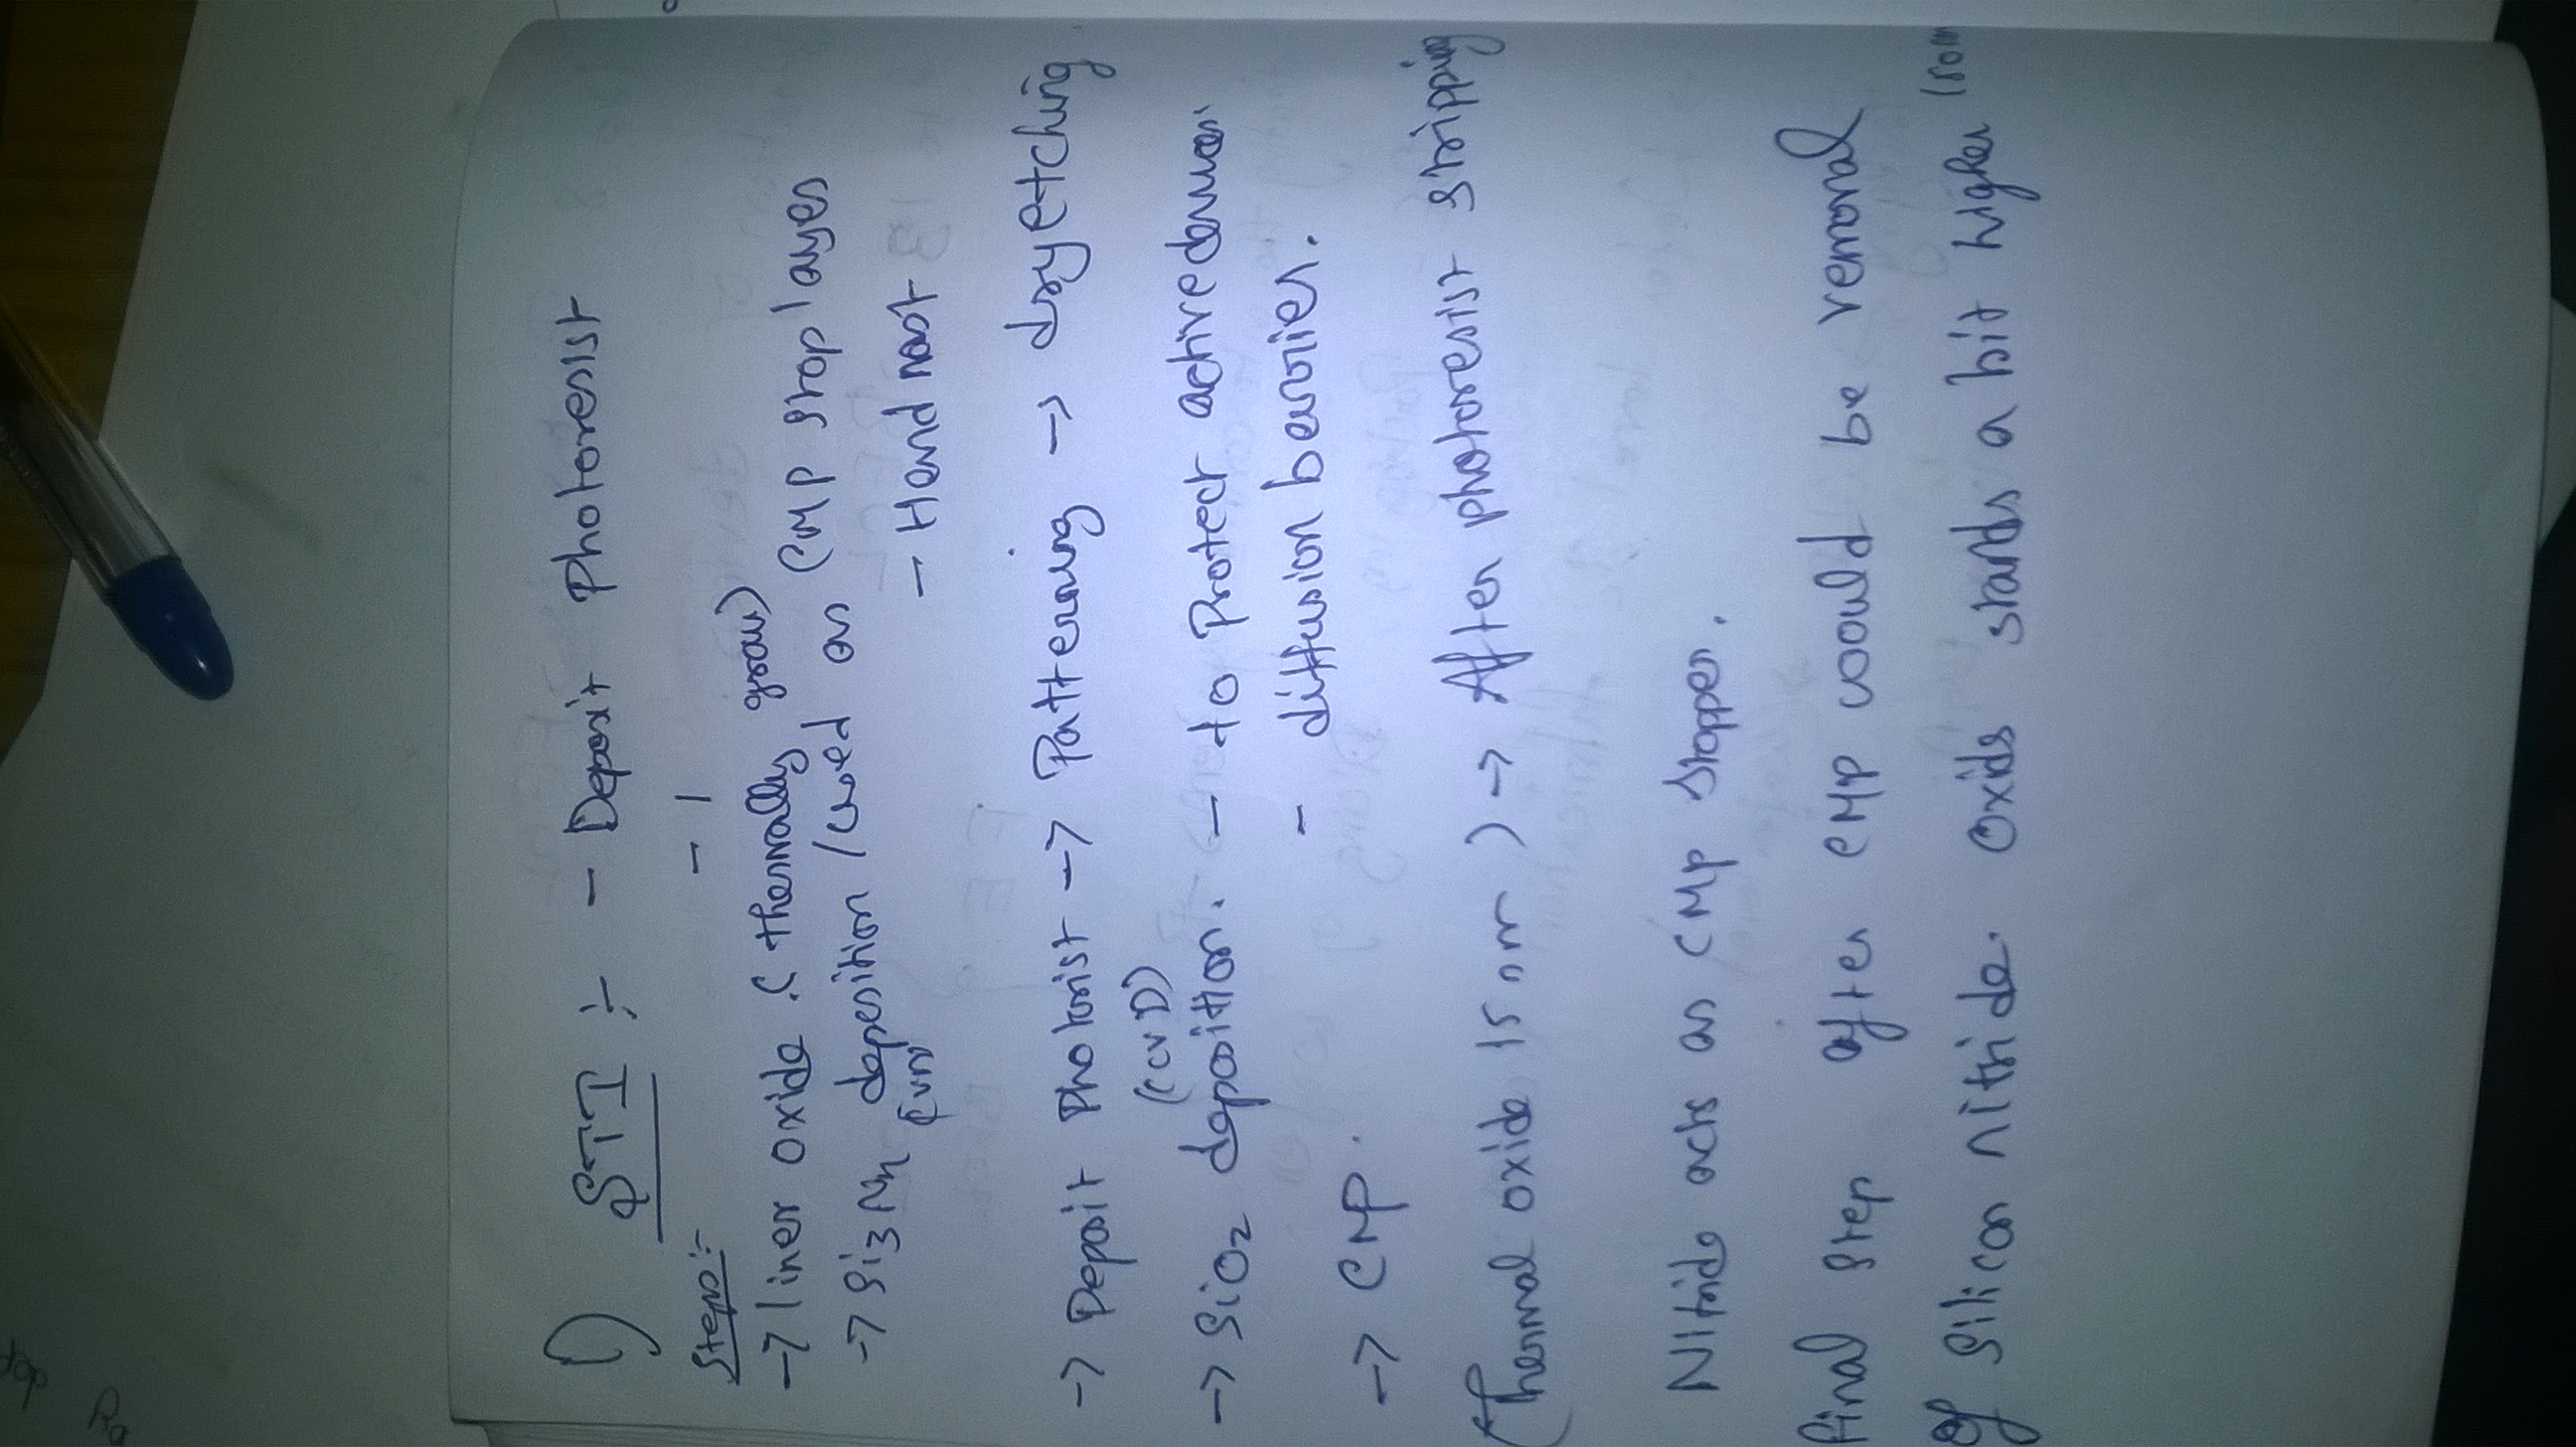 1) STI :- - Deposit Photoresist
Steps:-
- 1
-> liner oxide . ( thermally grow)
-> Si3N4 deposition / used as CMP stop layer
(CVD)
- Hard mask
-> Deposit Photorist -> Patterning -> dry etching
(CVD)
-> SiO2 deposition. - to Protect active
- diffusion barrier.
-> CMP.
(Thermal oxide 15 nm ) -> After photoresist stripping
Nitride acts as CMP stopper.
final step after CMP woould be removal
of Silicon nitride. Oxide stands a bit higher